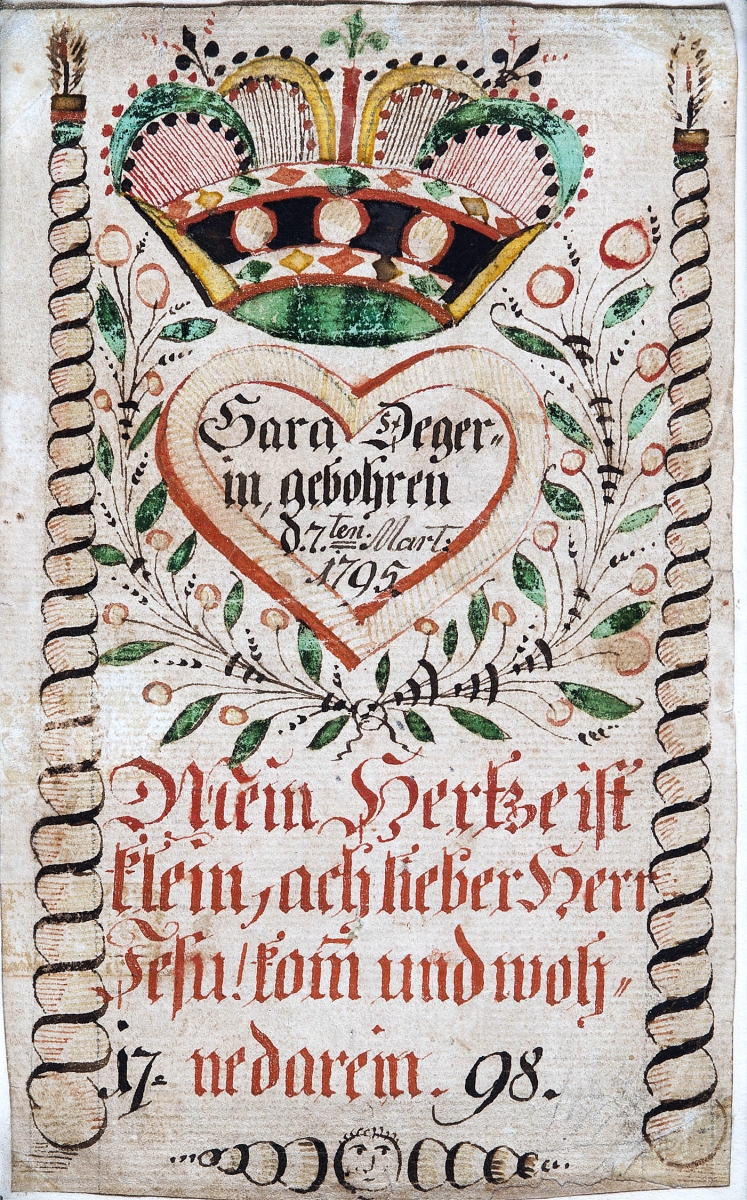 Sara Deger=
in, gebohren
d. 7ten. Mart:
1795
Mein Hertze ist
klein, ach lieber Herr
Jesu! kom̅ und woh=
17= ne darein. 98.